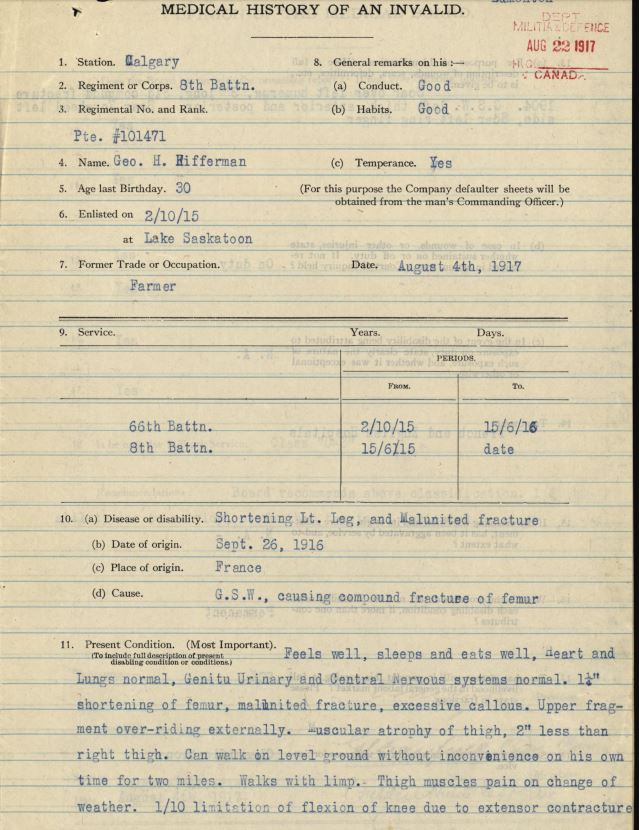 MEDICAL HISTORY OF AN INVALID.
Edmonton
DEPT
MILITIA & DEFENCE
AUG 22 1917
H.Q.
CANADA.
1. Station. Calgary
2. Regiment or Corps. 8th Battn.
3. Regimental No. and Rank.
Pte. #101471
4. Name. Geo. H. Hifferman
5. Age last Birthday. 30
6. Enlisted on 2/10/15
at Lake Saskatoon
7. Former Trade or Occupation.
Farmer
8. General remarks on his :—
(a) Conduct. Good
(b) Habits. Good
(c) Temperance. Yes
(For this purpose the Company defaulter sheets will be
obtained from the man's Commanding Officer.)
Date. August 4th, 1917
9. Service. Years. Days.
PERIODS.
FROM. TO.
66th Battn. 2/10/15 15/6/16
8th Battn. 15/6/15 date
10. (a) Disease or disability. Shortening Lt. Leg, and Malunited fracture
(b) Date of origin. Sept. 26, 1916
(c) Place of origin. France
(d) Cause. G.S.W., causing compound fracture of femur
11. Present Condition. (Most Important). Feels well, sleeps and eats well, Heart and
(To include full description of present
disabling condition or conditions.)
Lungs normal, Genitu Urinary and Central Nervous systems normal. 1¼"
shortening of femur, malunited fracture, excessive callous. Upper frag-
ment over-riding externally. Muscular atrophy of thigh, 2" less than
right thigh. Can walk on level ground without inconvenience on his own
time for two miles. Walks with limp. Thigh muscles pain on change of
weather. 1/10 limitation of flexion of knee due to extensor contracture